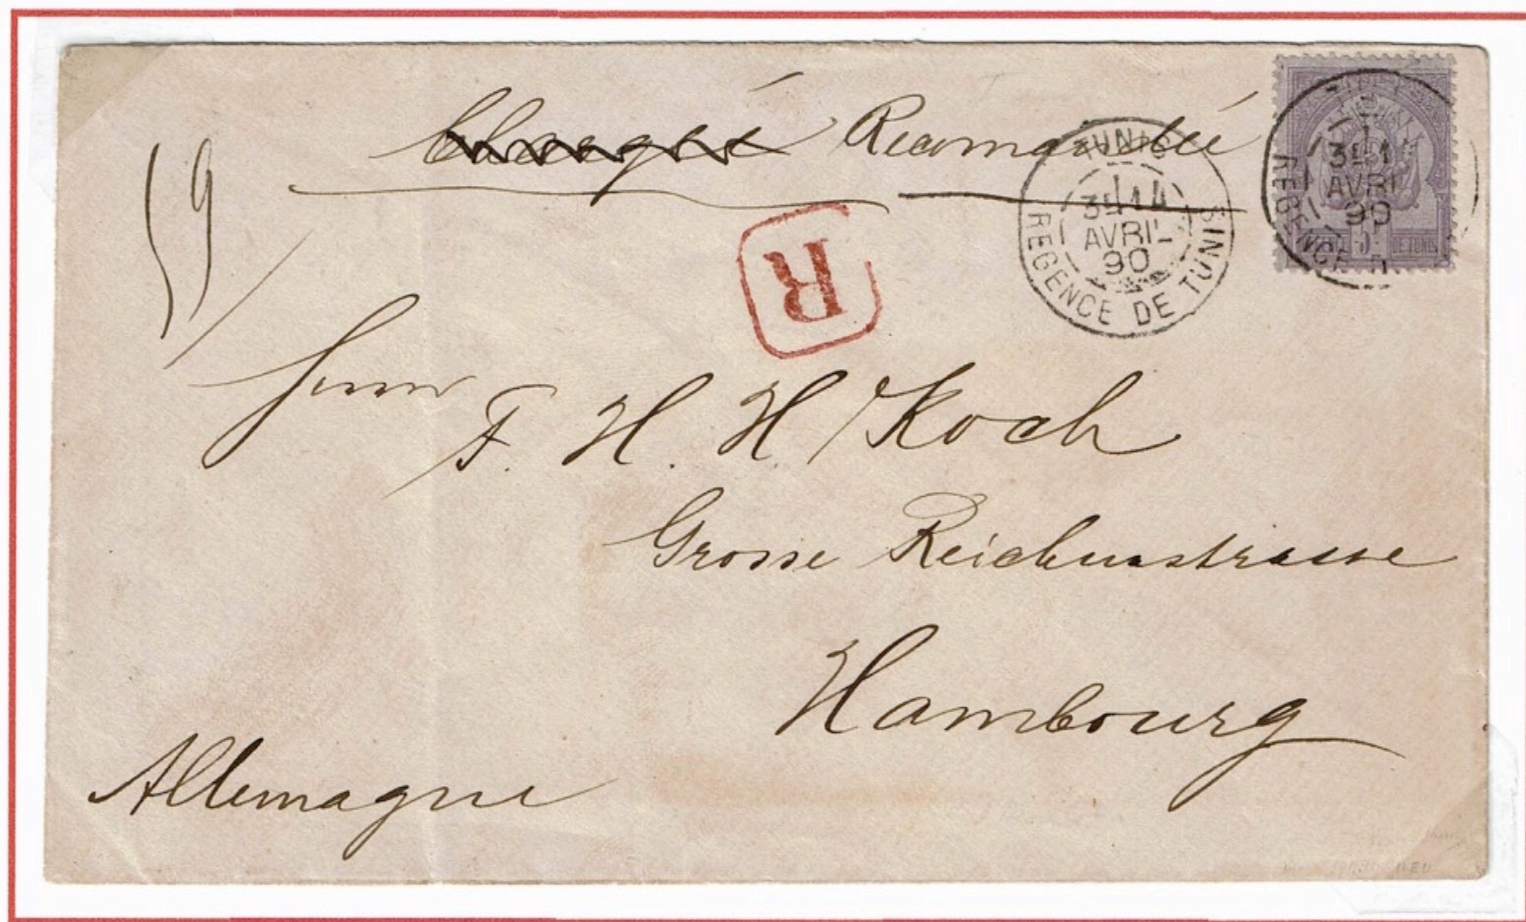 Chargé Recomandée
59
R
TUNIS
3E 14
AVRIL
90
REGENCE DE TUNIS
3E 1
AVRIL
90
REGENCE
DE TUNIS
Herrn
F. H. H. Koch
Grosse Reichenstrasse
Hambourg
Allemagne